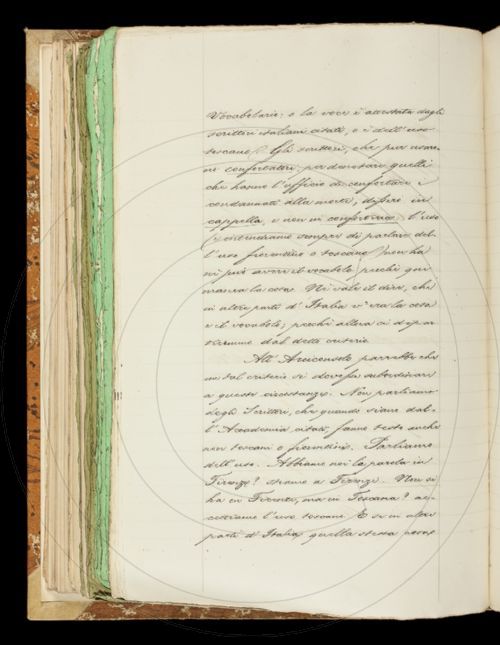 Vocabolario: o la voce è attestata dagli
scrittori italiani citati, o è dell'uso
toscano. Gli scrittori, che pur usaro
no confortatori, per denotare quelli
che hanno l'ufficio di confortare i
condannati alla morte, dissero in
cappella, e non in conforteria. l'uso
(e intendiamo sempre di parlare del
l'uso fiorentino o toscano) non ha
nè può avere il vocabolo, perchè qui
manca la cosa. Nè vale il dire, che
in altre parti d'Italia v'era la cosa
e il vocabolo; perchè allora ci dipar
tiremmo dal detto criterio.
All'Arciconsolo parrebbe che
un tal criterio si dovesse subordinare
a queste circostanze. Non parliamo
degli Scrittori, che quando siano dal-
l'Accademia citati, fanno testo anche
non toscani o fiorentini. Parliamo
dell'uso. Abbiamo noi la parola in
Firenze? stiamo a Firenze. Non si
ha in Firenze, ma in Toscana? ac-
cettiamo l'uso toscano. E se in altre
parti d'Italia quella stessa